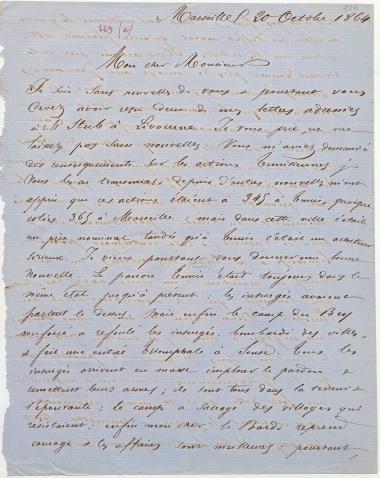 Marseille 20 Octobre 1864
169 (a)
Mon cher Monsieur
Je suis sans nouvelles de vous & pourtant vous
devez avoir reçu deux de mes lettres adressées
à Mr Stub à Livourne. Je vous prie, ne me
laissez pas sans nouvelles. Vous m'aviez demandé
des renseignements sur les actions tunisiennes, je
vous les ai transmis; depuis d'autres nouvelles m'ont
appris que ces actions étaient à 345 à Tunis quoique
cotées 365 à Marseille: mais dans cette ville c'était
un prix nominal tandis qu'à Tunis c'était un acheteur
sérieux. Je viens pourtant vous donner une bonne
nouvelle. Le pauvre Tunis était toujours dans le
même état jusqu'à présent: les insurgés avaient
partout le dessus, mais enfin le camp du Bey
renforcé a refoulé les insurgés, bombardé des villes,
& fait une entrée triomphale à Souse. Tous les
insurgés arrivent en masse implorer le pardon &
remettent leurs armes; ils sont tous dans la terreur &
l'épouvante; le camp a saccagé des villages qui
résistaient: enfin mon cher, le Bardo reprend
courage & les affaires sont meilleures: pourtant,